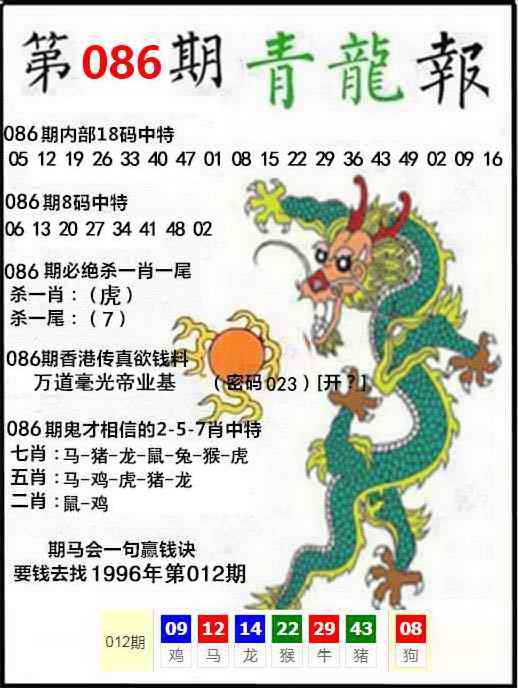 第086期 青龍報
086期内部18码中特
05 12 19 26 33 40 47 01 08 15 22 29 36 43 49 02 09 16
086期8码中特
06 13 20 27 34 41 48 02
086期必绝杀一肖一尾
杀一肖：（虎）
杀一尾：（7）
086期香港传真欲钱料
万道毫光帝业基 （密码023）[开？]
086期鬼才相信的2-5-7肖中特
七肖：马-猪-龙-鼠-兔-猴-虎
五肖：马-鸡-虎-猪-龙
二肖：鼠-鸡
期马会一句赢钱诀
要钱去找1996年第012期
012期 09 12 14 22 29 43 08
鸡 马 龙 猴 牛 猪 狗